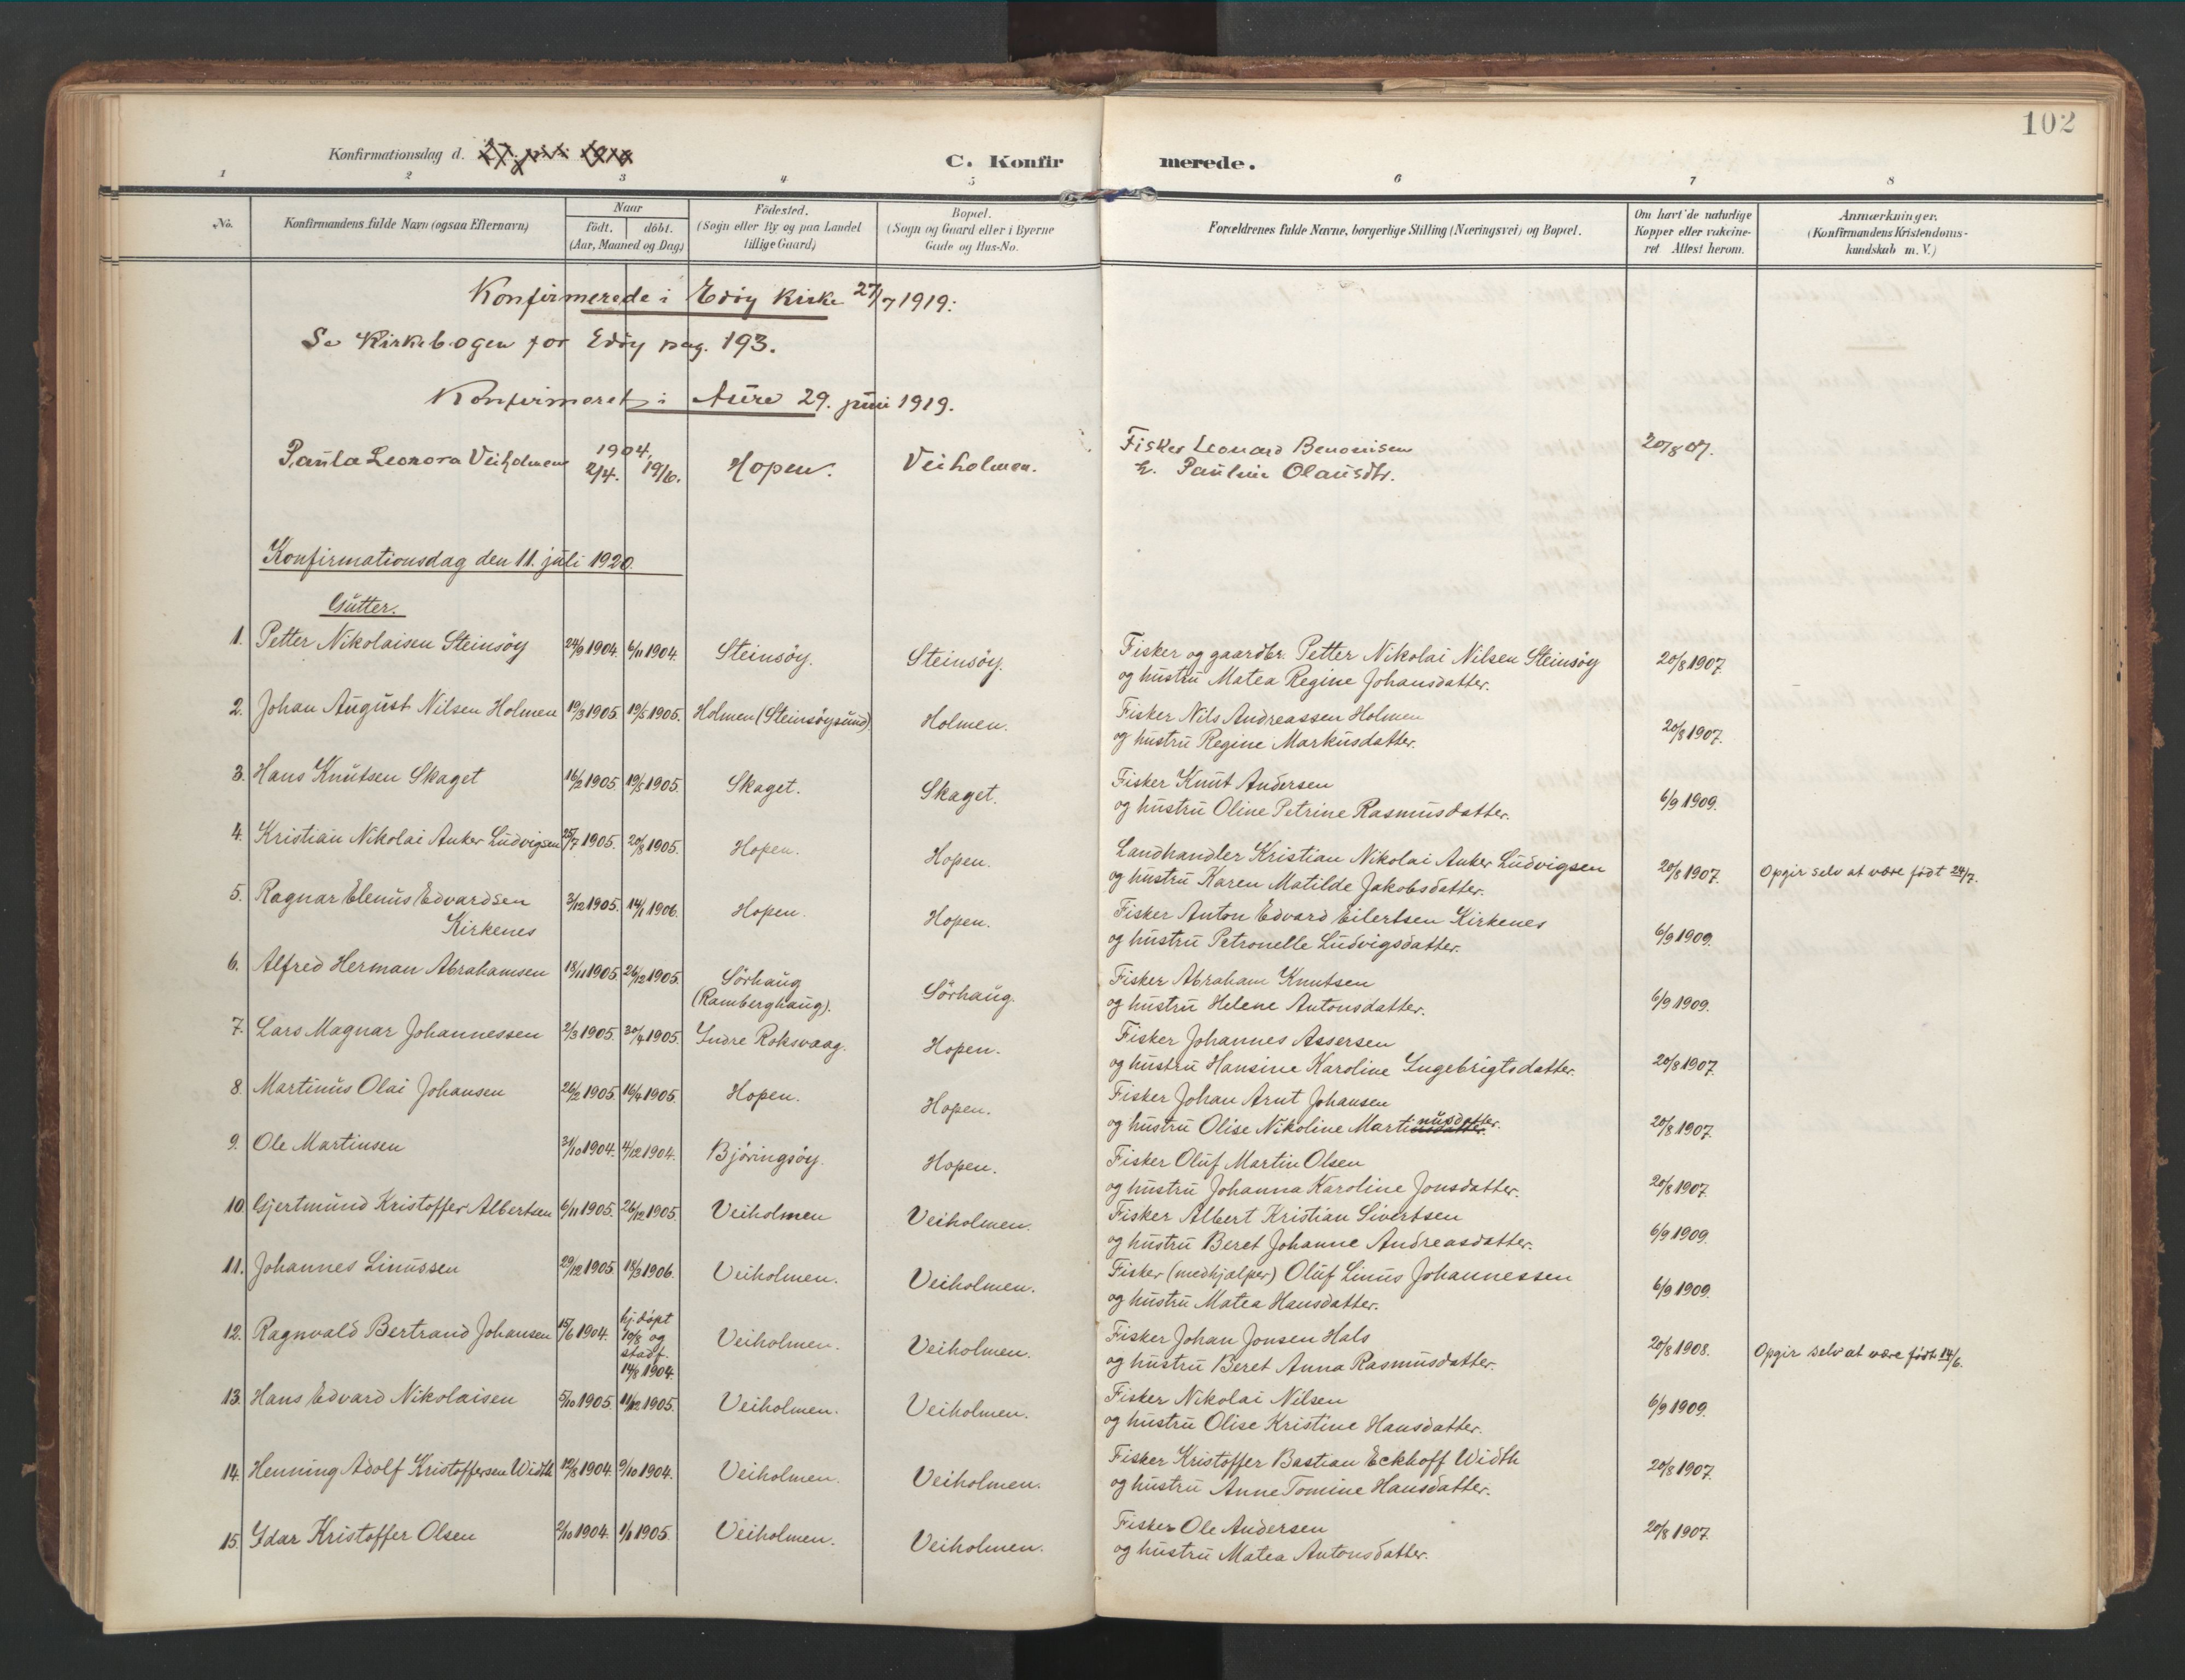 102
Konfirmationsdag d.
C. Konfirmerede.
1 2 3 4 5 6 7 8
No. Konfirmandens fulde Navn (ogsaa Efternavn) Naar født. døbt. (Aar, Maaned og Dag) Fødested. (Sogn eller By og paa Landet tillige Gaard) Bopæl. (Sogn og Gaard eller i Byerne Gade og Hus-No. Forældrenes fulde Navne, borgerlige Stilling (Næringsvei) og Bopæl. Om havt de naturlige Kopper eller vakcineret Attest herom. Anmærkninger. (Konfirmandens Kristendomskundskab m. V.)
Konfirmerede i Edöy Kirke 27/7 1919:
Se Kirkebogen for Edöy pag. 193.
Konfirmeret i Aure 29. juni 1919.
Paula Leonora Veiholmen 1904. 2/4. 19/6. Hopen. Veiholmen. Fisker Leonard Benonisen 20/8 07.
h. Pauline Olausdtr.
Konfirmationsdag den 11. juli 1920.
Gutter.
1. Petter Nikolaisen Steinsöy 24/9 1904. 6/11 1904. Steinsöy. Steinsöy. Fisker og gaardbr. Petter Nikolai Nilsen Steinsöy 20/8 1907.
og hustru Matea Regine Johansdatter.
2. Johan August Nilsen Holmen 19/3 1905. 19/5 1905. Holmen (Steinsöysund). Holmen. Fisker Nils Andreassen Holmen 20/8 1907.
og hustru Regine Markusdatter.
3. Hans Knutsen Skaget 16/2 1905 19/5 1905. Skaget. Skaget. Fisker Knut Andersen 6/9 1909.
og hustru Oline Petrine Rasmusdatter.
4. Kristian Nikolai Anker Ludvigsen 25/7 1905. 20/8 1905. Hopen. Hopen. Landhandler Kristian Nikolai Anker Ludvigsen 20/8 1907. Opgir selv at være födt 24/7.
og hustru Karen Matilde Jakobsdatter.
5. Ragnar Elenus Edvardsen 3/12 1905. 14/1 1906. Hopen. Hopen. Fisker Anton Edvard Eilertsen Kirkenes 6/9 1909.
Kirkenes og hustru Petronelle Ludvigsdatter.
6. Alfred Herman Abrahamsen 18/11 1905 26/12 1905. Sörhaug Sörhaug. Fisker Abraham Knutsen 6/9 1909.
(Ramberghaug). og hustru Helene Antonsdatter.
7. Lars Magnar Johannessen 2/3 1905. 30/4 1905. Indre Roksvaag. Hopen. Fisker Johannes Assersen 20/8 1907.
og hustru Hansine Karoline Ingebrigtsdatter.
8. Martinus Olai Johansen 26/2 1905. 16/4 1905. Hopen. Hopen. Fisker Johan Arnt Johansen 20/8 1907.
og hustru Olise Nikoline Martinusdatter.
9. Ole Martinsen 31/10 1904. 4/12 1904. Björingsöy. Hopen. Fisker Oluf Martin Olsen 20/8 1907.
og hustru Johanna Karoline Jonsdatter.
10. Gjertmund Kristoffer Albertsen 6/11 1905. 26/12 1905. Veiholmen Veiholmen. Fisker Albert Kristian Sivertsen 6/9 1909.
og hustru Beret Johanne Andreasdatter.
11. Johannes Linussen 29/12 1905 18/3 1906. Veiholmen. Veiholmen. Fisker (medhjælper) Oluf Linus Johannessen 6/9 1909.
og hustru Matea Hansdatter.
12. Ragnvald Bertrand Johansen 15/6 1904. hj. döpt 10/8 og stadf. 14/8 1904. Veiholmen. Veiholmen. Fisker Johan Jonsen Hals 20/8 1908. Opgir selv at være födt 14/6.
og hustru Beret Anna Rasmusdatter.
13. Hans Edvard Nikolaisen 5/10 1905. 11/12 1905. Veiholmen. Veiholmen. Fisker Nikolai Nilsen 6/9 1909.
og hustru Olise Kristine Hansdatter.
14. Henning Adolf Kristoffersen Width 12/8 1904. 9/10 1904. Veiholmen. Veiholmen. Fisker Kristoffer Bastian Eckhoff Width 20/8 1907.
og hustru Anne Tomine Hansdatter.
15. Idar Kristoffer Olsen 2/10 1904. 1/1 1905. Veiholmen. Veiholmen. Fisker Ole Andersen 20/8 1907.
og hustru Matea Antonsdatter.